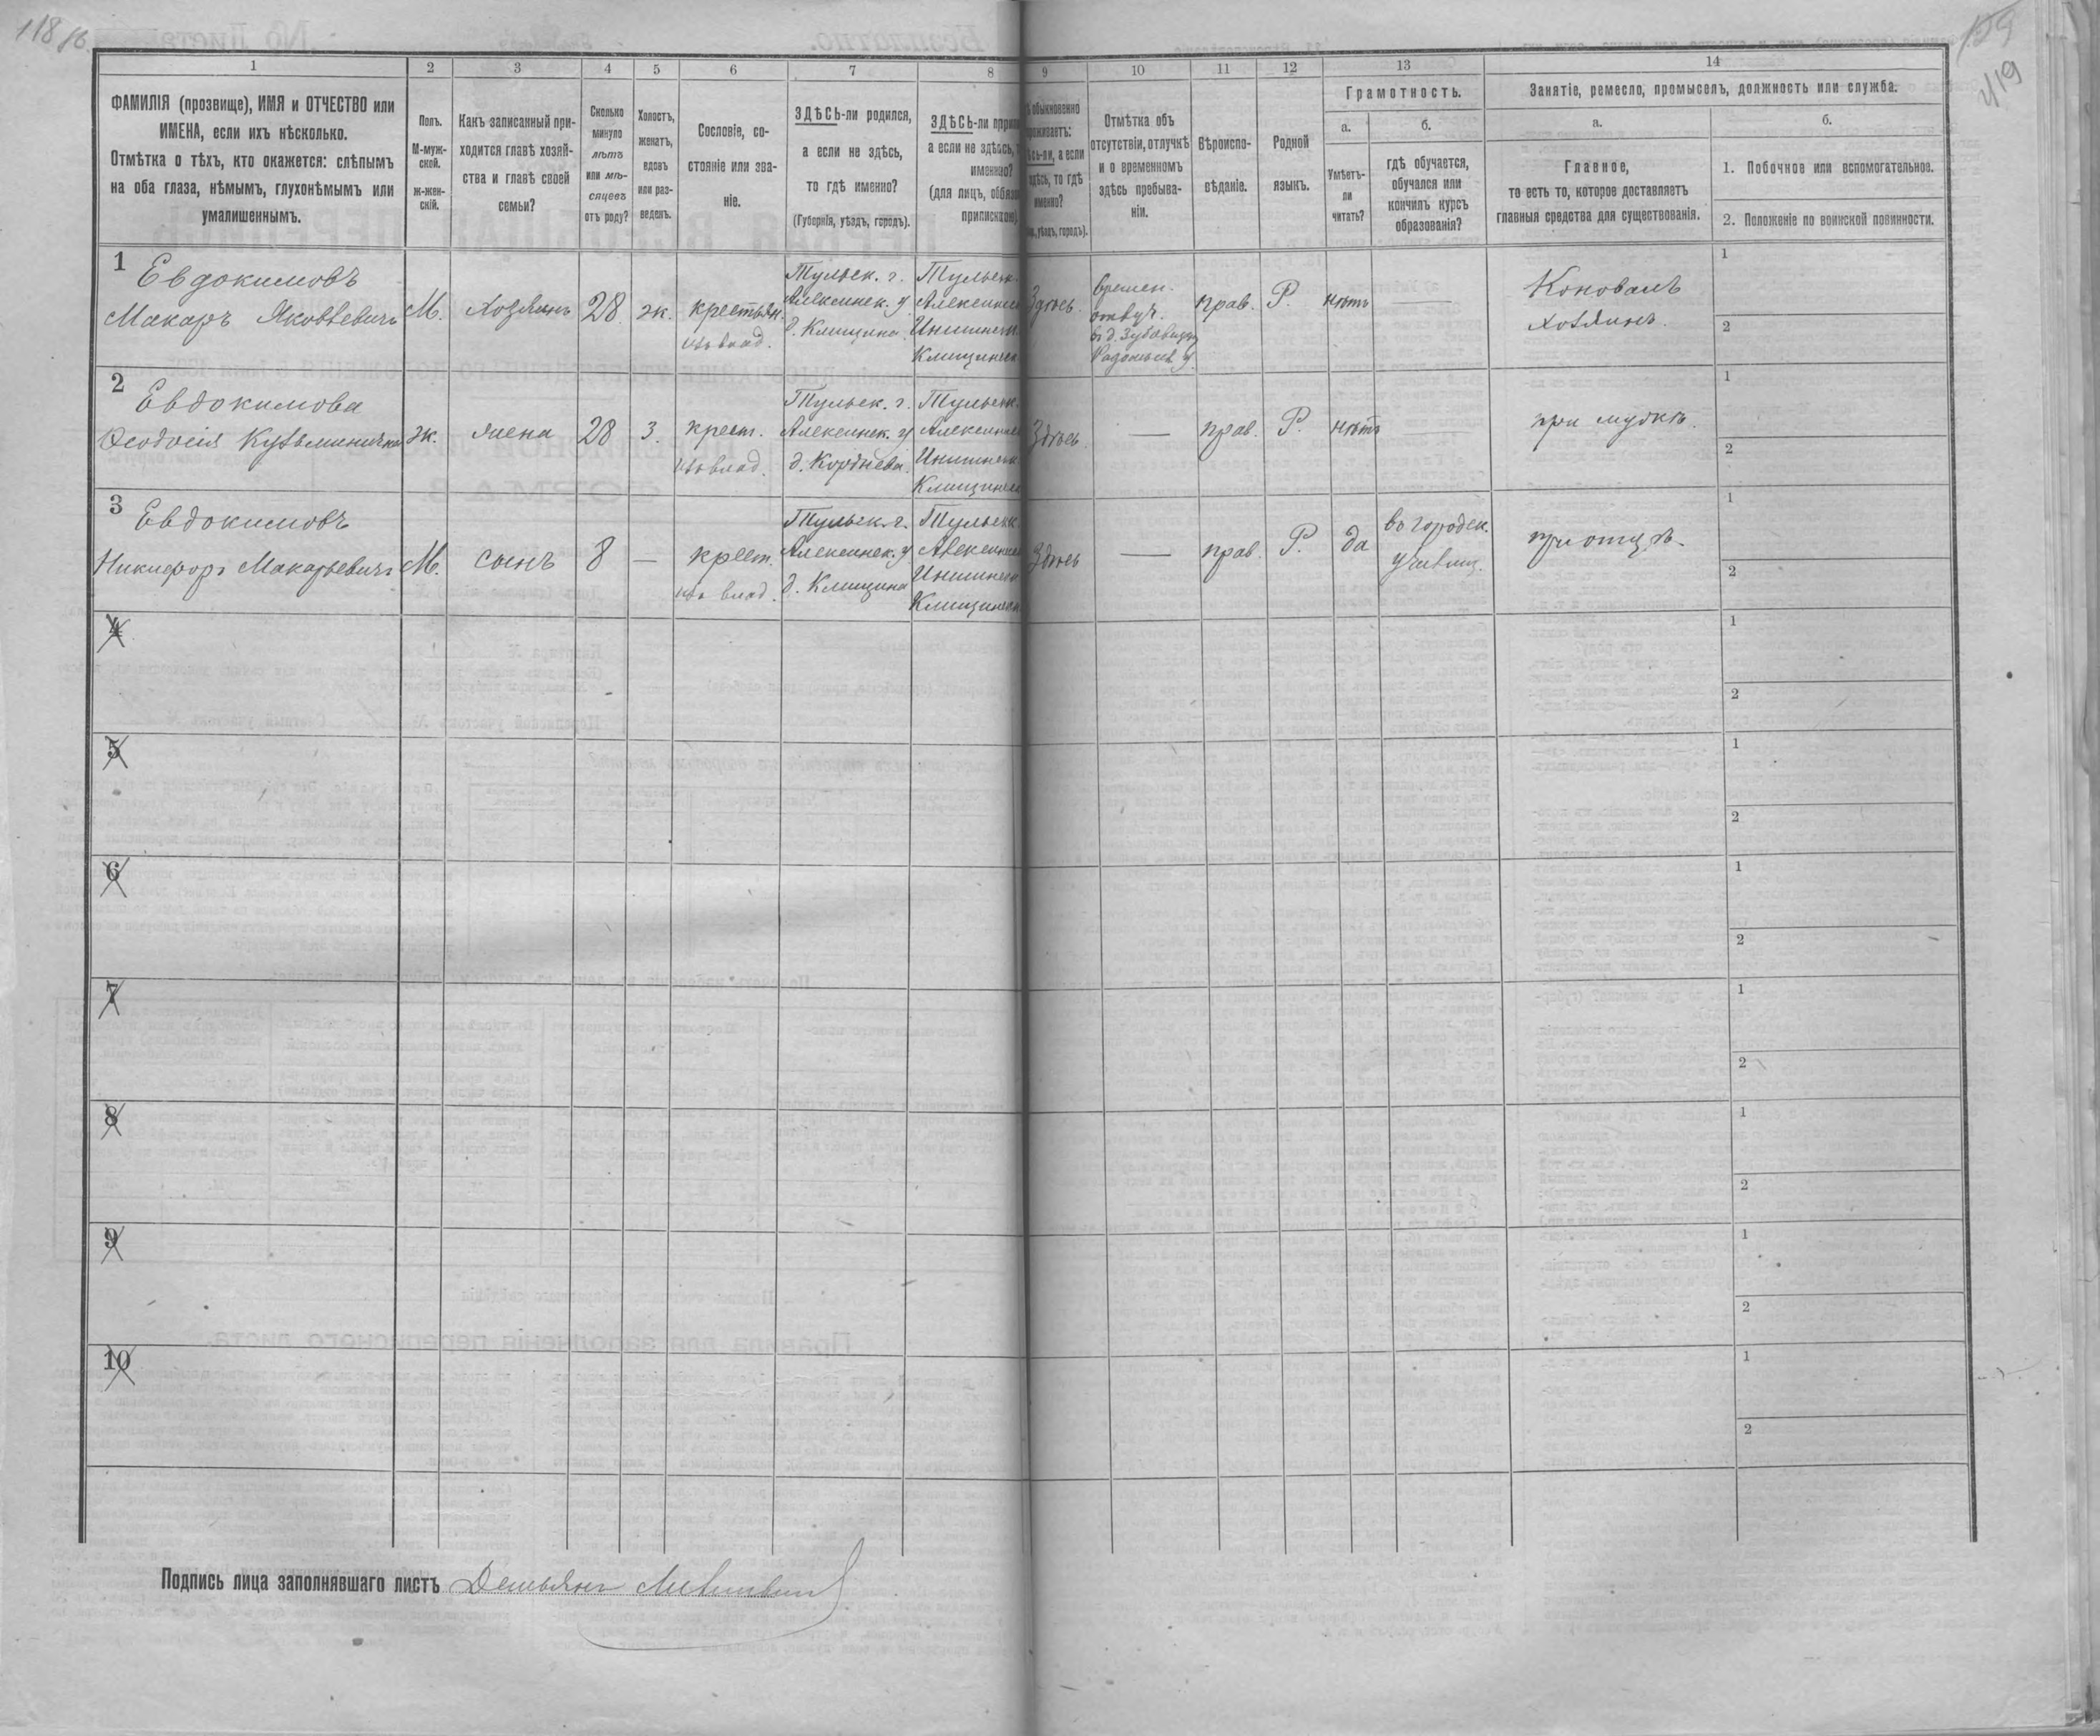 118 об.
119
1
2
3
4
5
6
7
8
9
10
11
12
13
14
ФАМИЛІЯ (прозвище), ИМЯ и ОТЧЕСТВО или
ИМЕНА, если ихъ нѣсколько.
Отмѣтка о тѣхъ, кто окажется: слѣпымъ
на оба глаза, нѣмымъ, глухонѣмымъ или
умалишеннымъ.
Полъ.
М-муж-
ской.
ж-жен-
скій.
Какъ записанный при-
ходится главѣ хозяй-
ства и главѣ своей
семьи?
Сколько
минуло
лѣтъ
или мѣ-
сяцевъ
отъ роду?
Холостъ,
женатъ,
вдовъ
или раз-
веденъ.
Сословіе, со-
стояніе или зва-
ніе.
ЗДѢСЬ-ли родился,
а если не здѣсь,
то гдѣ именно?
(Губернія, уѣздъ, городъ).
ЗДѢСЬ-ли
а если не здѣсь,
именно?
(для лицъ,
обыкновенно
а если
здѣсь, то гдѣ
именно?
уѣздъ, городъ).
Отмѣтка объ
отсутствіи, отлучкѣ
и о временномъ
здѣсь пребыва-
ніи.
Вѣроиспо-
вѣданіе.
Родной
языкъ.
Грамотность.
а.
Умѣетъ-
ли
читать?
б.
гдѣ обучается,
обучался или
кончилъ курсъ
образованія?
Занятіе, ремесло, промыселъ, должность или служба.
а.
Главное,
то есть то, которое доставляетъ
главныя средства для существованія.
б.
1. Побочное или вспомогательное.
2. Положеніе по воинской повинности.
1
Евдокимовъ
Макаръ Яковлевичъ
М.
Хозяинъ
28
ж.
крестьян.
изъ влад.
Тульск. г.
Алексинск. у
д. Клищина
Тульск.
Здѣсь.
времен.
отлуч.
прав.
Р.
нѣтъ
—
Коновалъ
Хозяинъ.
1
2
2
Евдокимова
Ѳеодосія Кузьминична
ж.
жена
28
З.
крест.
изъ влад.
Тульск. г.
Алексинск. у
д. Корднева
Тульск.
Здѣсь.
—
прав.
Р.
нѣтъ
при мужѣ.
1
2
3
Евдокимовъ
Никифоръ Макарьевичъ
М.
сынъ
8
—
крест.
изъ влад.
Тульск. г.
Алексинск. у
д. Клищина
Тульск.
Здѣсь
—
прав.
Р.
да
въ городск.
училищ.
при отцѣ.
1
2
4
1
2
5
1
2
6
1
2
7
1
2
8
1
2
9
1
2
10
1
2
Подпись лица заполнявшаго листъ Демьянъ Литвин